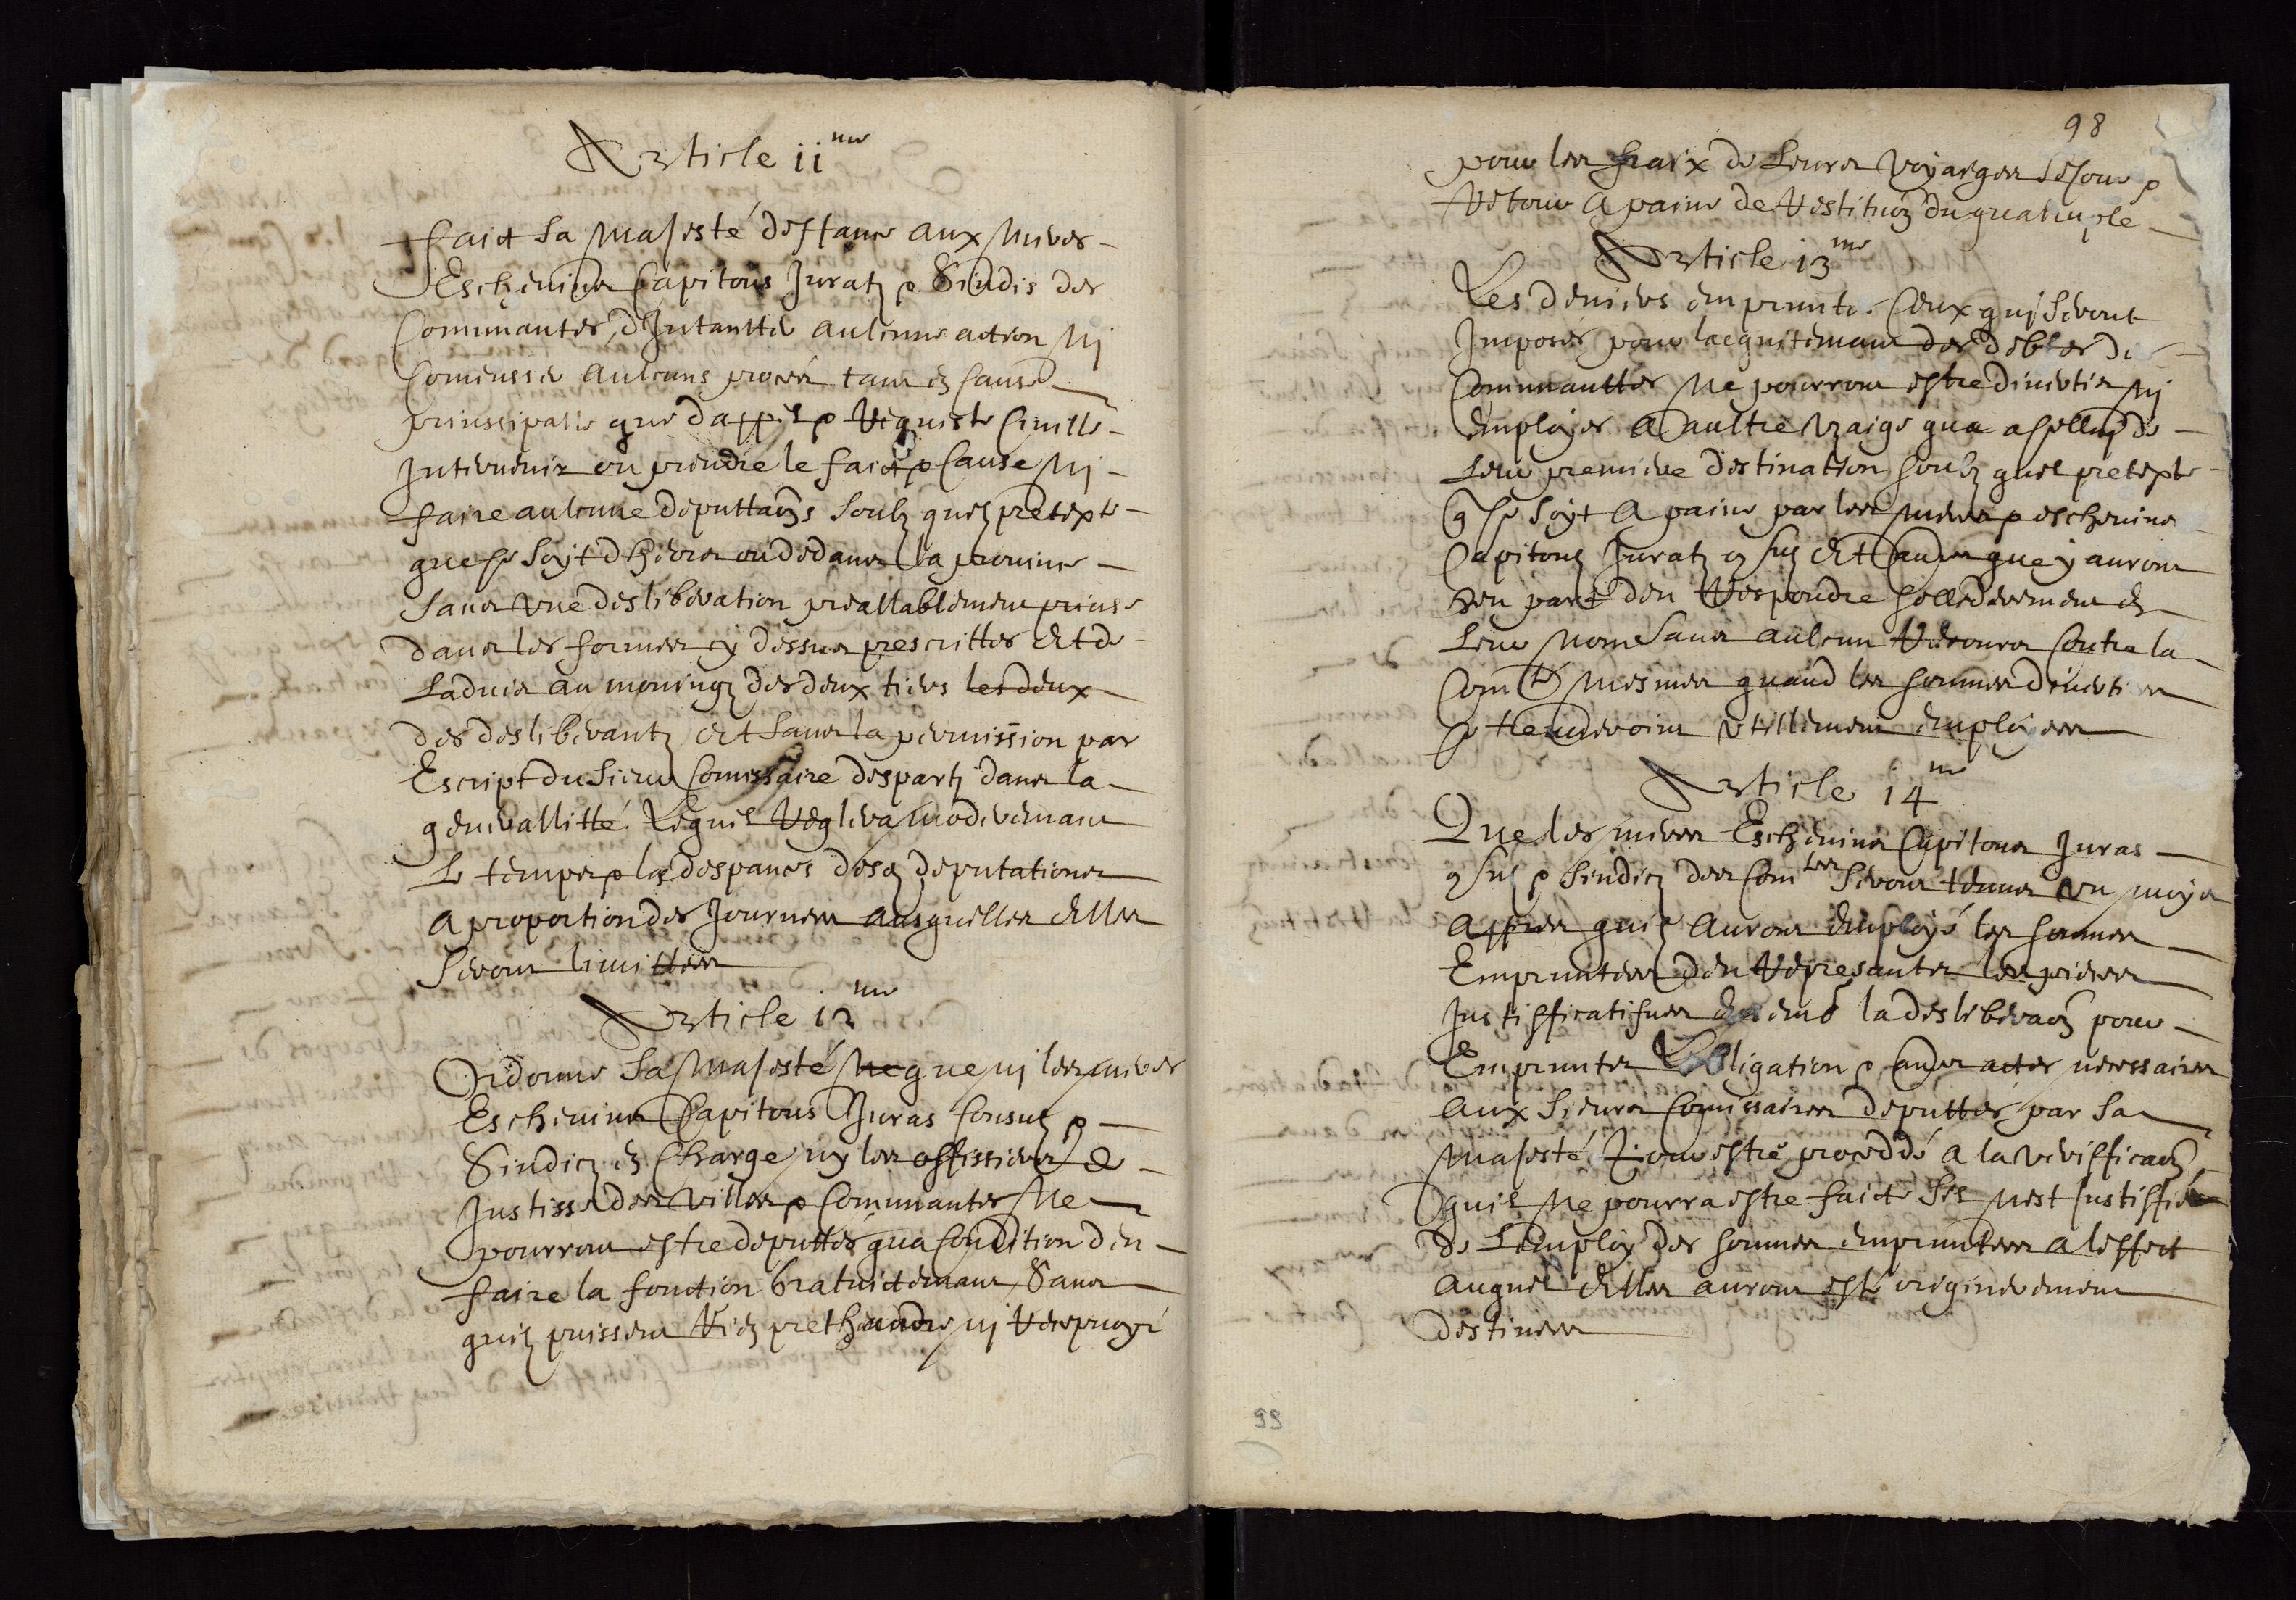 Article 11me
Faict Sa Majesté deffance aux Mires
Eschevins Capitouls Juratz & Sindis des
Communautes, d'Intantter aulcune action Ni
Comensser aulcuns proces tant en Cause
prinssipalle que dappel & Requeste Civille
Intervenir ou prendre le faict & Cause Ni
faire aulcune deputtaons Soubz quel pretexte
que ce Soyt dhiores ou dedans la province
Sans une deslibération preallablement prinse
dans les formes cy dessus prescrittes Et de
Ladvis au moingz des deux tiers les deux
des deslibérantz Et Sans la permission par
Escript du Sieur Comissaire desparty dans la
generallitté. Lequel Reglera moderemant
Le temps & la despances desd deputations
a proportion des Journees ausquelles Elles
Seront limittees
Article 12me
Ordonne Sa Majesté Ne que ni les mires
Eschevins Capitouls Juras Consulz &
Sindicz en Charge ny les offissiers de
Justisse des villes & Communautes Ne
pourront estre deputtés qua Condition den
faire la fonction Gratuictemant Sans
quilz puissent Rien prethandre ni
98
pour les fraix de Leurs voyaiges Sejour &
Retour a paine de Restituon du quatruple
Article 13me
Les deniers empruntes Ceux quj Seront
Imposés pour lacquitemant des debtes de
Communauttes Ne pourront estre divertis Ni
Employes a aultre Uzaige qua a celluy de
Leur premiere destination soubz quel pretexte
q ce Soyt a paine par les mires & eschevins
Capitouls Juratz consulz Et aultres que y auront
part den Respondre sollidairement en
Leur Nom Sans aulcun Recours Contre la
Comté Mesmes quand les sommes diverties
utillement Employees
Article 14me
Que les mires Eschevins Capitouls Juras
consulz & Sindicz des Comtes Seront tenus un moys
Appres quilz Auront Employé les sommes
Empruntees den Represanter les pieces
Justifficatifves la deslibéraon pour
Emprunter Lobligation & autres actes necessaires
aux Sieurs Comissaires deputtés par Sa
Majesté Pour estre proceddé a la veriffication
quil Ne pourra estre faicte Sil Nest Justiffié
de Lemploy des sommes empruntees a leffect
auquel Elles auront esté originerement
destinees
99